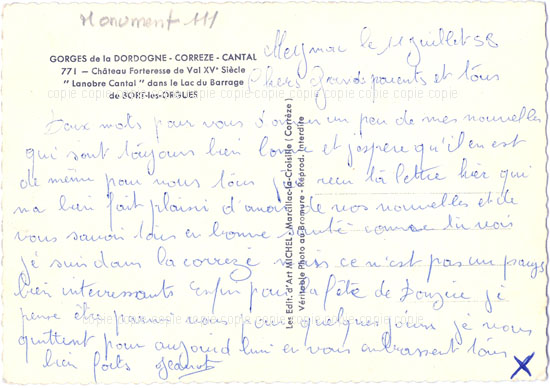 Monument 111
GORGES de la DORDOGNE - CORREZE - CANTAL
771 — Château Forteresse de Val XVe Siècle
" Lanobre Cantal " dans le Lac du Barrage
de BORT-les-ORGUES
Meymac le 11 juillet 58
Chers grands parents et tous
Deux mots pour vous donner un peu de mes nouvelles
qui sont toujours bien bonne et j'espère qu'il en est
de même pour vous tous j'ai reçu ta lettre hier qui
ma bien fait plaisir d'avoir de vos nouvelles et de
vous savoir tous en bonne santé comme tu vois
je suis dans la correze mais ce n'est pas un pays
bien interressants Enfin pour la fête de je
pense être parmis vous pour quelques jours je vous
quittent pour aujourd hui en vous embrassent tous
bien forts Jeannot
X
Les Edit. d'Art MICHEL - Marcillac-la-Croisille (Corrèze)
Véritable Photo au Bromure - Réprod. Interdite
copie copie copie copie copie copie